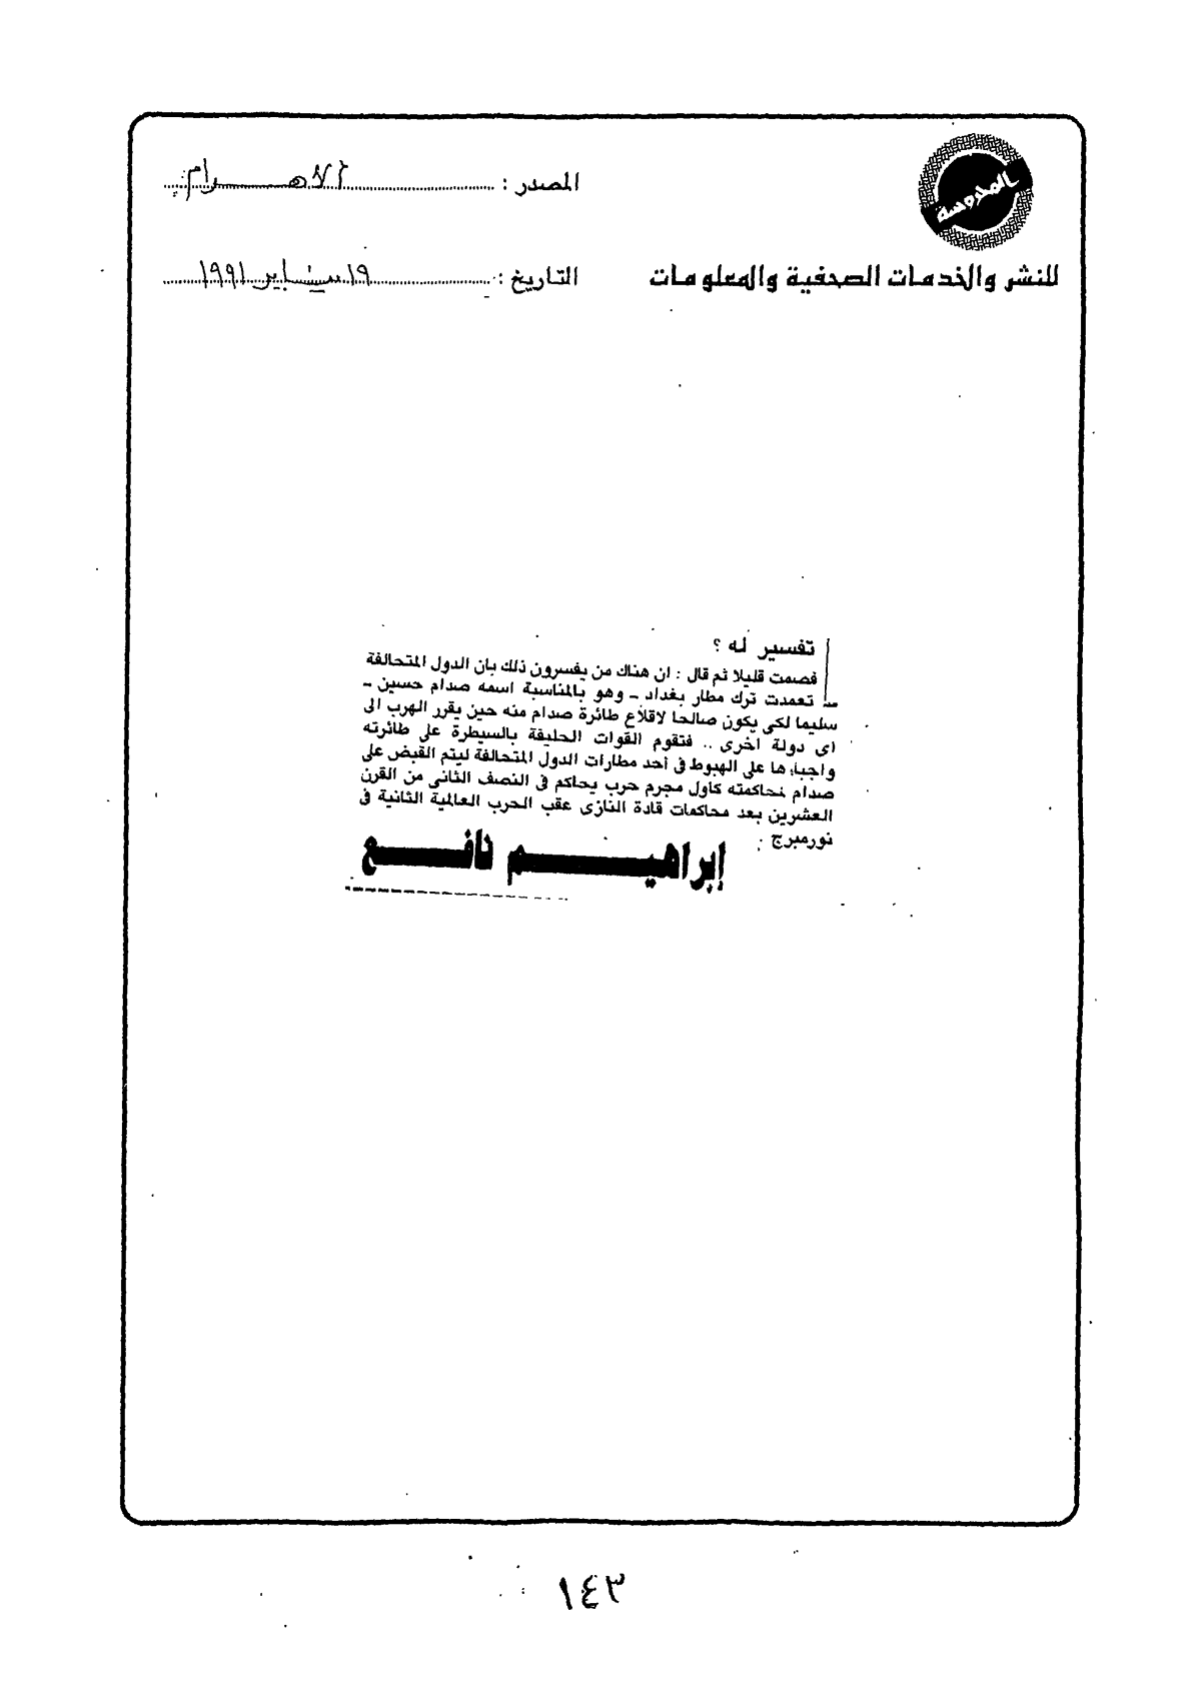 المحروسة
للنشر والخدمات الصحفية والمعلومات
المصدر : الاهرام
التاريخ : ١٩ يناير ١٩٩١
تفسير له ؟
فصمت قليلا ثم قال : ان هناك من يفسرون ذلك بان الدول المتحالفة
تعمدت ترك مطار بغداد ـ وهو بالمناسبة اسمه صدام حسين ـ
سليما لكى يكون صالحا لاقلاع طائرة صدام منه حين يقرر الهرب الى
اى دولة اخرى .. فتقوم القوات الحليفة بالسيطرة على طائرته
واجبارها على الهبوط فى أحد مطارات الدول المتحالفة ليتم القبض على
صدام لمحاكمته كأول مجرم حرب يحاكم فى النصف الثانى من القرن
العشرين بعد محاكمات قادة النازى عقب الحرب العالمية الثانية فى
نورمبرج .
إبراهيم نافع
١٤٣